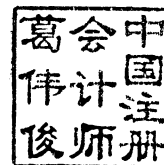 中国注册
会计师
葛伟俊